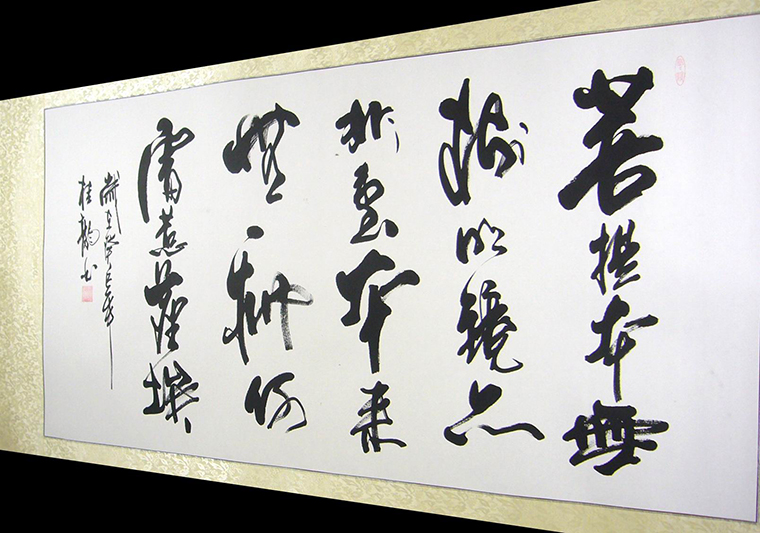 菩提本無
樹明鏡亦
非臺本来
無一物何
處惹塵埃
歲在癸巳年
桂韵书